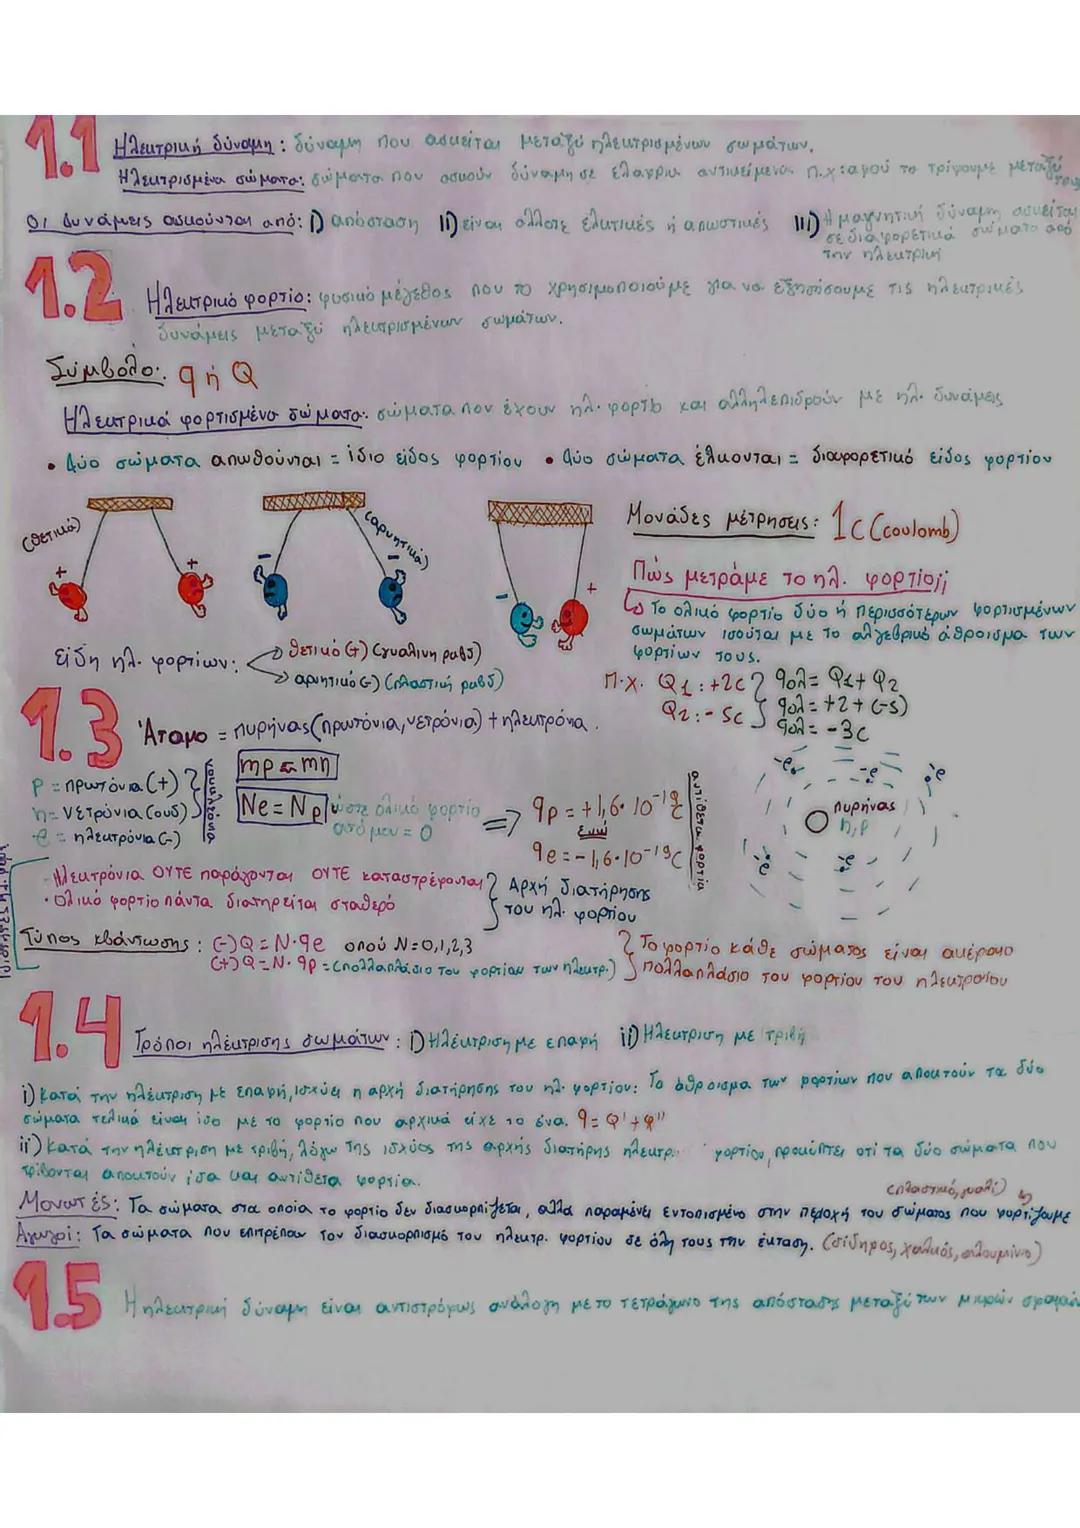 1.1 Ηλεκτρική δύναμη: δύναμη που ασκείται μεταξύ ηλεκτρισμένων σωμάτων.
Ηλεκτρισμένα σώματα: σώματα που ασκούν δύναμη σε ελαφριά αντικείμενα π.χ: αφού τα τρίψουμε μεταξύ τους
Οι δυνάμεις ασκούνται από: i) απόσταση ii) είναι άλλοτε ελκτικές ή απωστικές iii) Η μαγνητική δύναμη ασκείται
σε διαφορετικά σώματα από
την ηλεκτρική
1.2 Ηλεκτρικό φορτίο: φυσικό μέγεθος που το χρησιμοποιούμε για να εξηγήσουμε τις ηλεκτρικές
δυνάμεις μεταξύ ηλεκτρισμένων σωμάτων.
Σύμβολο: q ή Q
Ηλεκτρικά φορτισμένα σώματα: σώματα που έχουν ηλ. φορτίο και αλληλεπιδρούν με ηλ. δυνάμεις
• Δύο σώματα απωθούνται = ίδιο είδος φορτίου • Δύο σώματα έλκονται = διαφορετικό είδος φορτίου
(θετικά)
+ +
(αρνητικά)
- -
- +
Μονάδες μέτρησεις: 1C (coulomb)
Πώς μετράμε το ηλ. φορτίο;;
↳ Το ολικό φορτίο δύο ή περισσότερων φορτισμένων
σωμάτων ισούται με το αλγεβρικό άθροισμα των
φορτίων τους.
Π.Χ. Q1: +2C } qολ = Q1 + Q2
Q2: -5C qολ = +2 + (-5)
qολ = -3C
Είδη ηλ. φορτίων: → θετικό (+) (γυάλινη ραβδ)
→ αρνητικό (-) (πλαστική ραβδ)
1.3 Άτομο = πυρήνας (πρωτόνια, νετρόνια) + ηλεκτρόνια.
p = πρωτόνια (+)
n = νετρόνια (ουδ)
e = ηλεκτρόνια (-)
νουκλεόνια
mp ≈ mn
Ne = Np ώστε ολικό φορτίο
ατόμου = 0
⇒ qp = +1,6·10⁻¹⁹C
ενώ
qe = -1,6·10⁻¹⁹C
αντίθετα φορτία
-e -e -e
πυρήνας
n, p
-e -e -e
- Ηλεκτρόνια ΟΥΤΕ παράγονται ΟΥΤΕ καταστρέφονται
· Ολικό φορτίο πάντα διατηρείται σταθερό
} Αρχή διατήρησης
του ηλ. φορτίου
Τύπος κβάντωσης: (-) Q = N·qe οπού N=0,1,2,3
(+) Q = N·qp = (πολλαπλάσιο του φορτίου των ηλεκτρ.)
} Το φορτίο κάθε σώματος είναι ακέραιο
πολλαπλάσιο του φορτίου του ηλεκτρονίου
1.4 Τρόποι ηλέκτρισης σωμάτων: i) Ηλέκτριση με επαφή ii) Ηλέκτριση με τριβή
i) Κατά την ηλέκτριση με επαφή, ισχύει η αρχή διατήρησης του ηλ. φορτίου: Το άθροισμα των φορτίων που αποκτούν τα δύο
σώματα τελικά είναι ίσο με το φορτίο που αρχικά είχε το ένα. q = Q' + Q''
ii) Κατά την ηλέκτριση με τριβή, λόγω της ισχύος της αρχής διατήρης ηλεκτρ. φορτίου, προκύπτει οτί τα δύο σώματα που
τρίβονται αποκτούν ίσα και αντίθετα φορτία.
(πλαστικό, γυαλί)
Μονωτές: Τα σώματα στα οποία το φορτίο δεν διασκορπίζεται, αλλά παραμένει εντοπισμένο στην περιοχή του σώματος που φορτίζουμε
Αγωγοί: Τα σώματα που επιτρέπουν τον διασκορπισμό του ηλεκτρ. φορτίου σε όλη τους την έκταση. (σίδηρος, χαλκός, αλουμίνιο)
1.5 Η ηλεκτρική δύναμη είναι αντιστρόφως ανάλογη με το τετράγωνο της απόστασης μεταξύ των μικρών σφαιρών